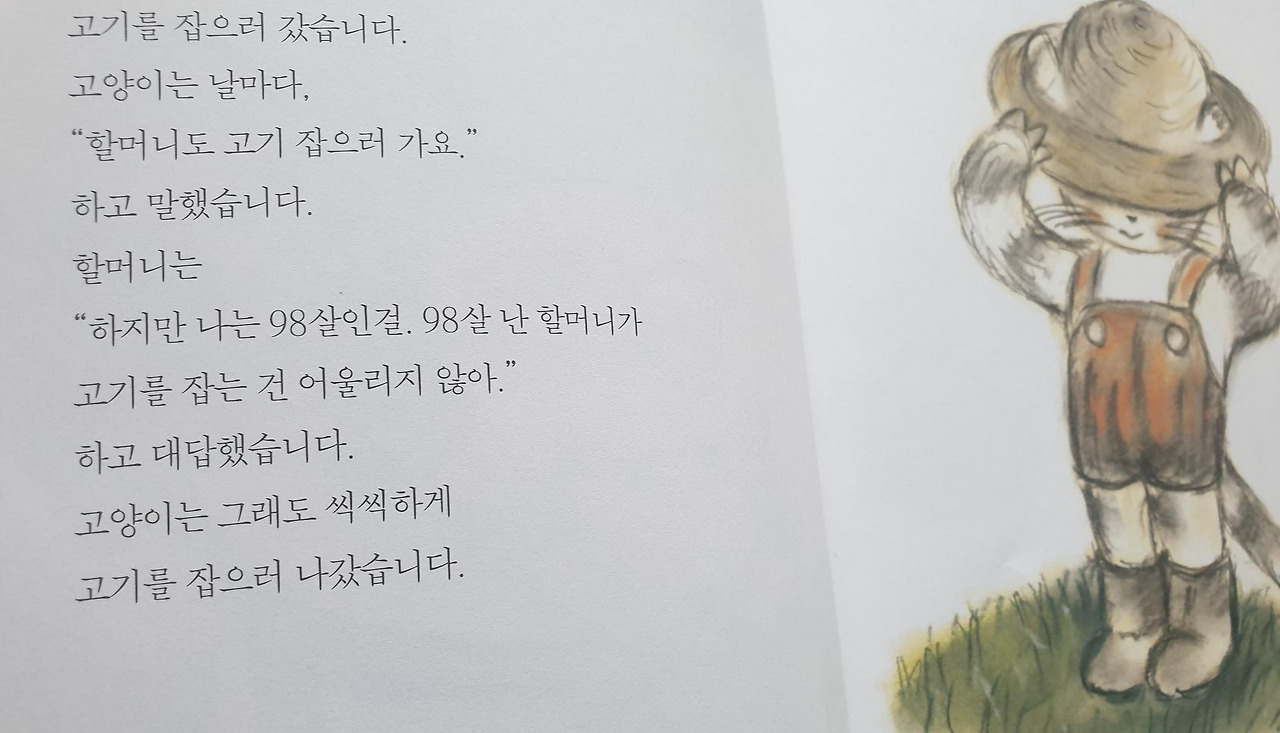 고기를 잡으러 갔습니다.
고양이는 날마다,
“할머니도 고기 잡으러 가요.”
하고 말했습니다.
할머니는
“하지만 나는 98살인걸. 98살 난 할머니가
고기를 잡는 건 어울리지 않아.”
하고 대답했습니다.
고양이는 그래도 씩씩하게
고기를 잡으러 나갔습니다.